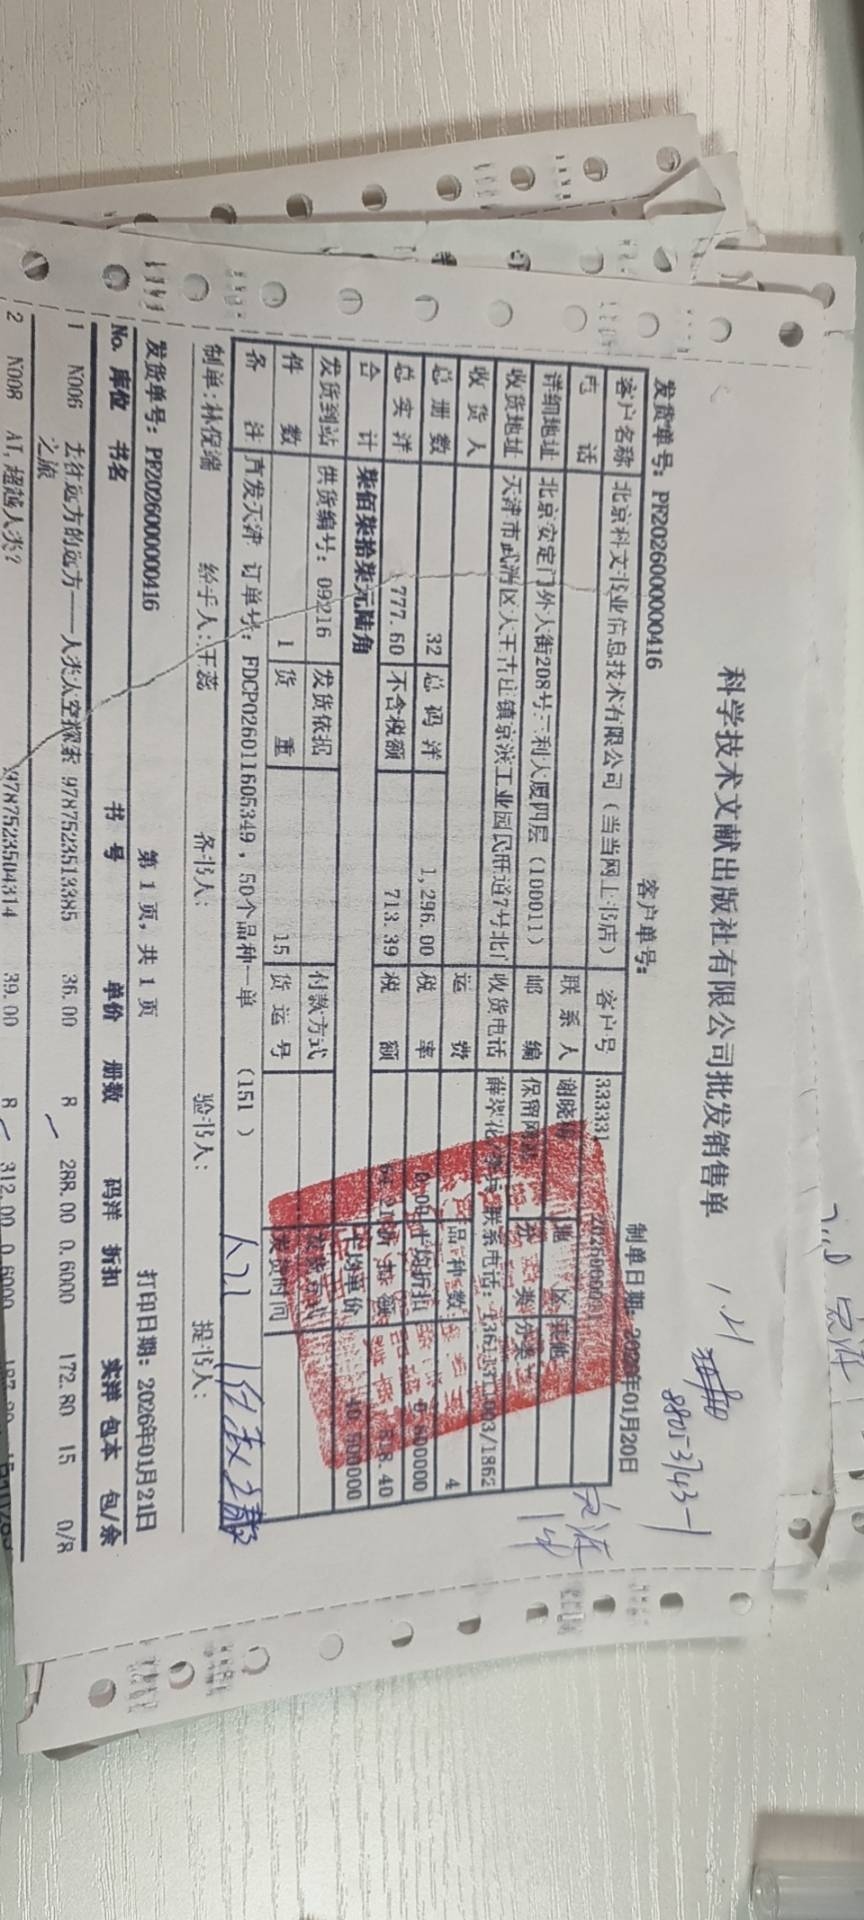 科学技术文献出版社有限公司批发销售单
发货单号: PF2026000000416 客户单号: 制单日期: 2026年01月20日
客户名称 北京科文书业信息技术有限公司(当当网上书店) 客户号 333331
电 话 联系人 谢晓
详细地址 北京安定门外大街208号三利大厦四层(100011) 邮 编 保留 地 区
收货地址 天津市武清区大王古庄镇京滨工业园民旺道7号北 收货电话 薛翠花 联系电话: /1862
收 货 人 运 费 品种数 4
总 册 数 32 总 码 洋 1,296.00 税 率 平均折扣 0.600000
总 实 洋 777.60 不含税额 713.39 税 额 518.40
合 计 柒佰柒拾柒元陆角 平均单价 40.500000
发货到站 供货编号: 09216 发货依据 付款方式 发货方式
件 数 1 货 重 15 货 运 号 发货时间
备 注 直发天津 订单号: FDCP026011605349,50个品种一单 (151 )
制单:林倪端 经手人:王蕊 备书人: 验书人: 提书人:
发货单号: PF2026000000416 第 1 页, 共 1 页 打印日期: 2026年01月21日
No. 库位 书名 书 号 单价 册数 码洋 折扣 实洋 包本 包/余
1 N006 去往远方的远方——人类太空探索 9787523513385 36.00 8 288.00 0.6000 172.80 15 0/8
之旅
2 N008 AI,超越人类? 9787523504314 39.00 8 312.00 0.6000
1.21
8805-3743-1